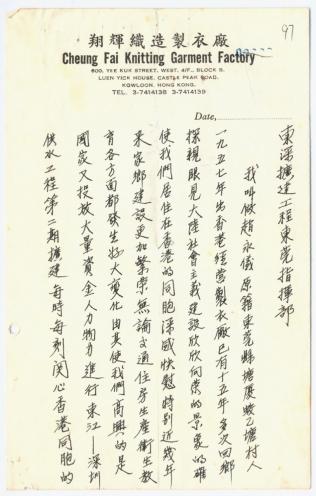 97
翔輝織造製衣廠
Cheung Fai Knitting Garment Factory
600, YEE KUK STREET, WEST, 4/F., BLOCK B,
LUEN YICK HOUSE, CASTLE PEAK ROAD,
KOWLOON, HONG KONG.
TEL. 3-7414138 3-7414139
Date,
東深擴建工程東莞指揮部
我叫候趙永儀原籍東莞縣塘廈蛟乙塘村人
一九五七年出香港經營製衣廠已有十五年多次回鄉
探親眼見大陸社會主義建設欣欣向榮的景象的確
使我們居住在香港的同胞深感快慰特別近幾年
来家鄉建設更加繁榮無論交通住房生產衛生教
育各方面都發生好大變化由其使我們高興的是
國家又投放大量資金人力物力進行東江——深圳
供水工程第二期擴建每時每刻関心香港同胞的